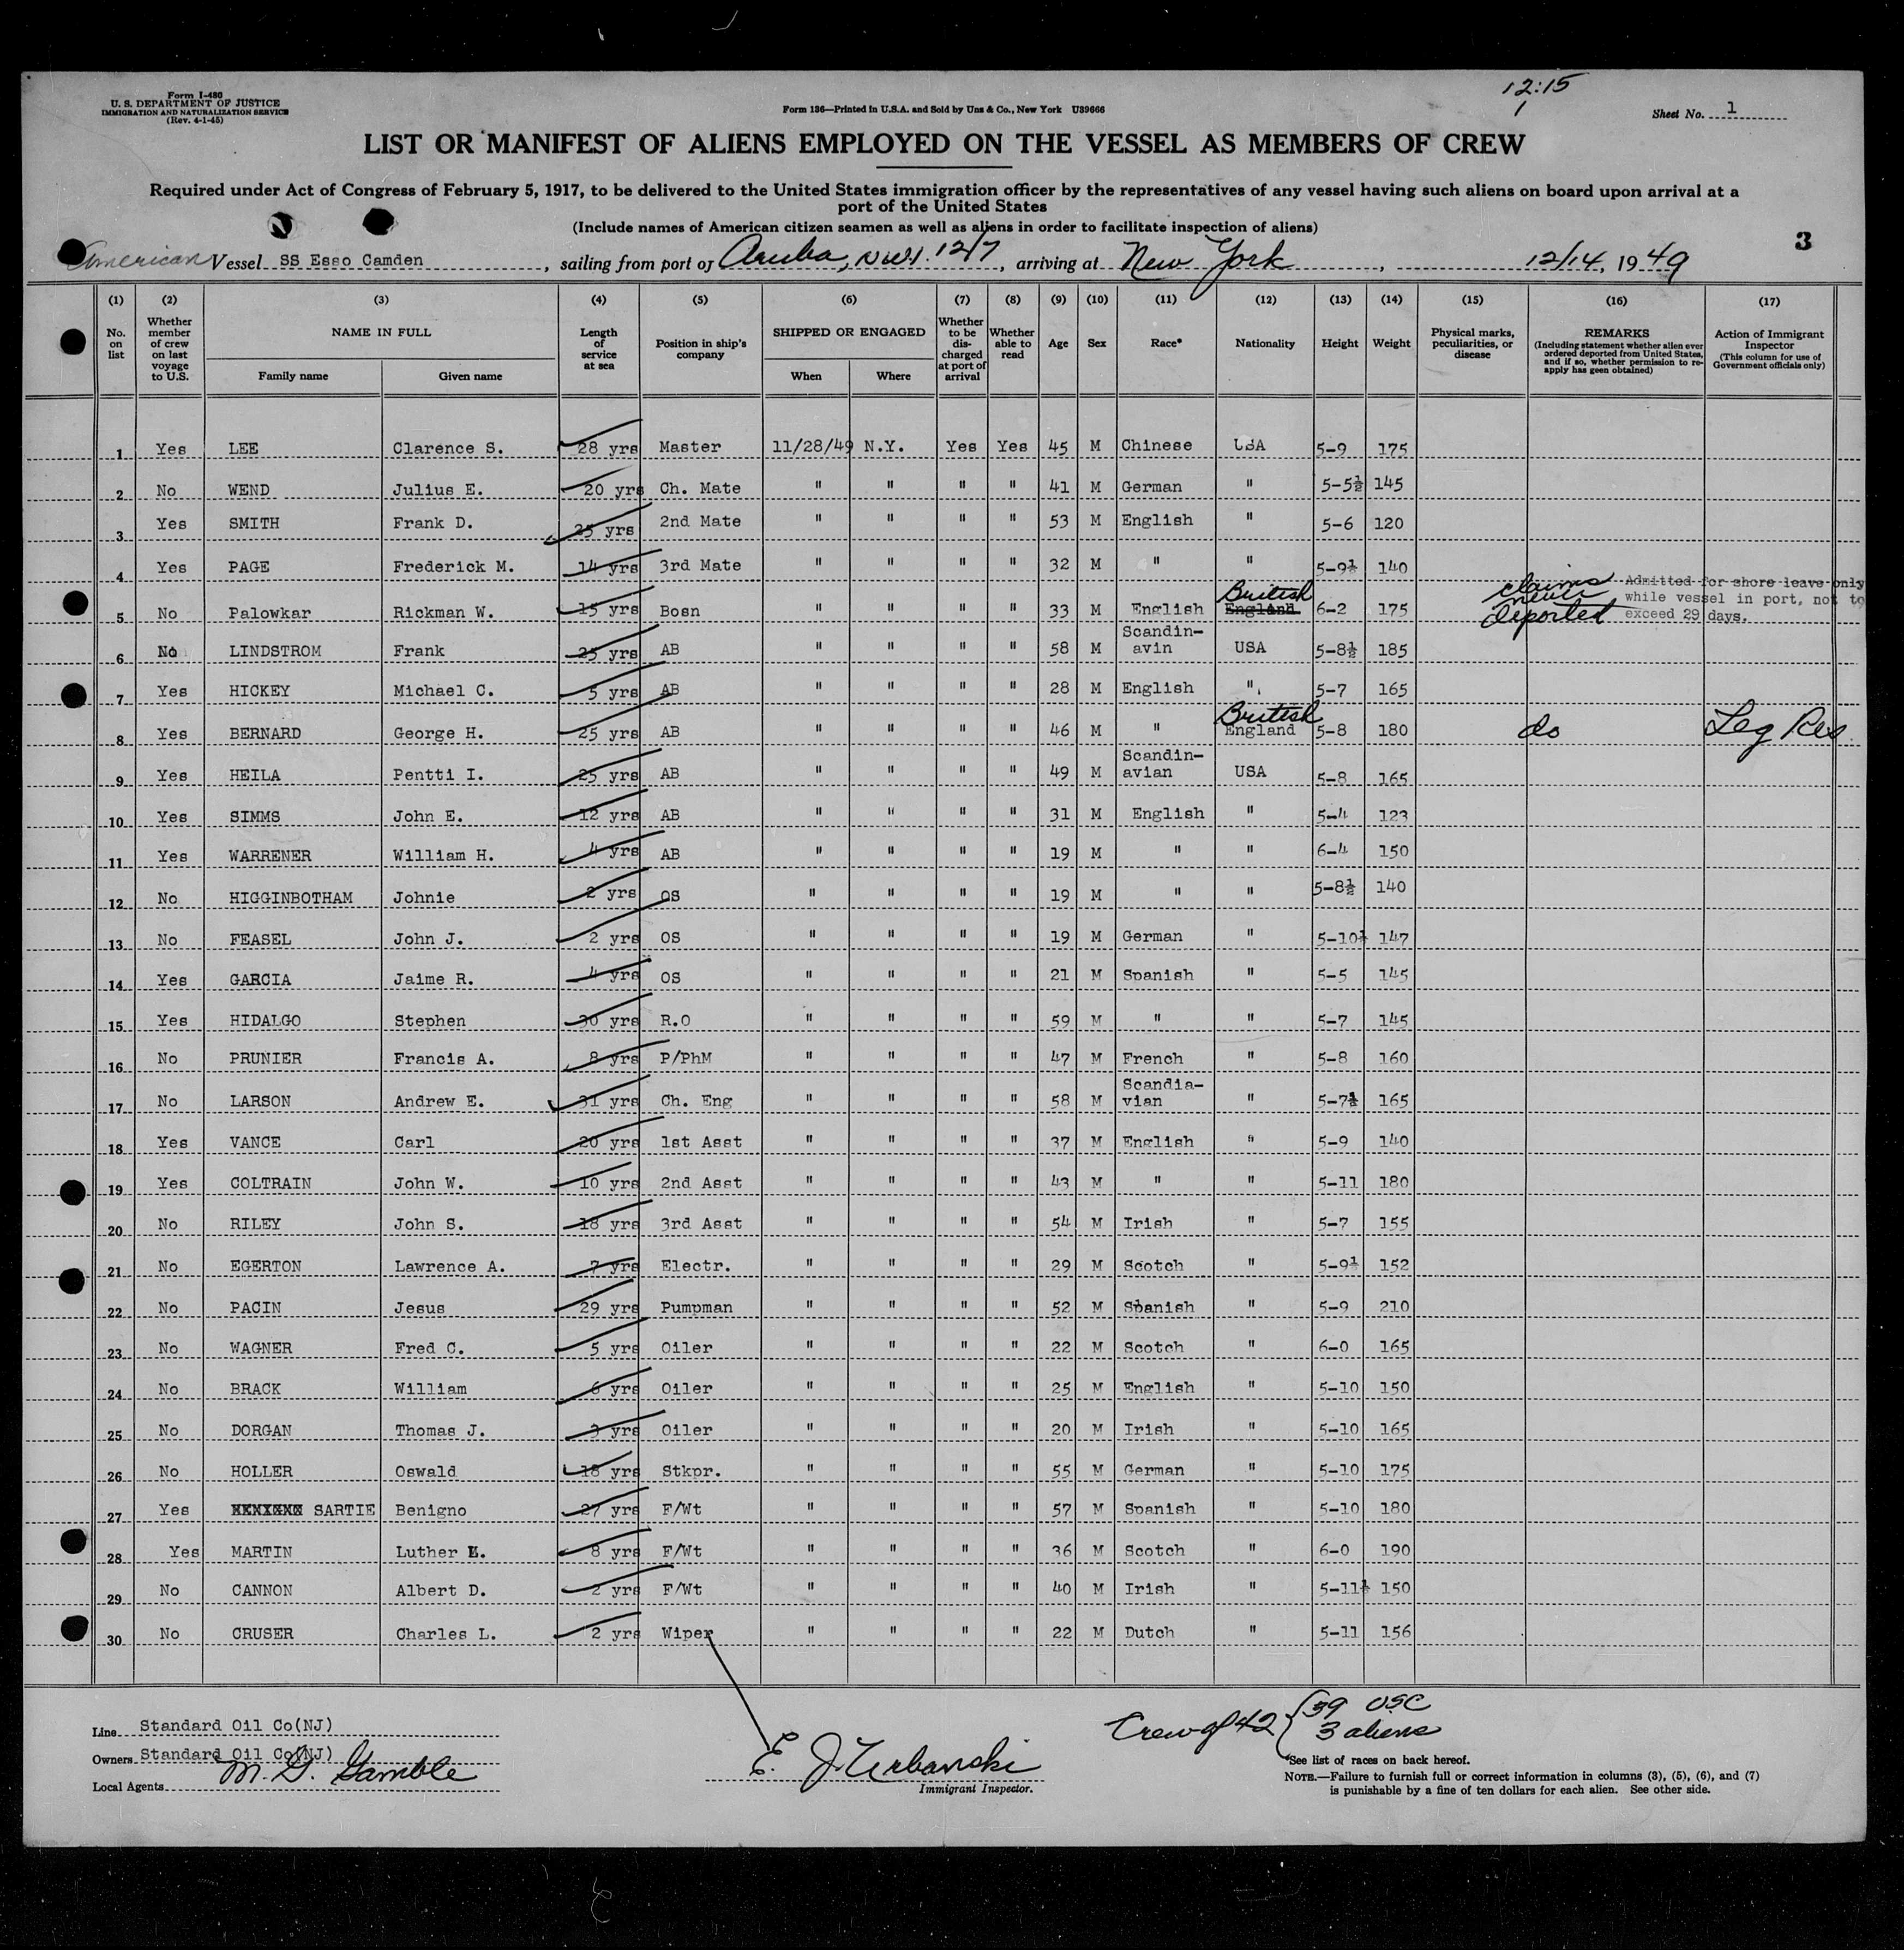 12:15
1
Form I-480
U. S. DEPARTMENT OF JUSTICE
IMMIGRATION AND NATURALIZATION SERVICE
(Rev. 4-1-45)
Form 136—Printed in U.S.A. and Sold by Unz & Co., New York U39666
Sheet No. 1
LIST OR MANIFEST OF ALIENS EMPLOYED ON THE VESSEL AS MEMBERS OF CREW
Required under Act of Congress of February 5, 1917, to be delivered to the United States immigration officer by the representatives of any vessel having such aliens on board upon arrival at a
port of the United States
(Include names of American citizen seamen as well as aliens in order to facilitate inspection of aliens)
3
American Vessel SS Esso Camden, sailing from port of Aruba, NWI. 12/7, arriving at New York, 12/14, 1949
(1) (2) (3) (4) (5) (6) (7) (8) (9) (10) (11) (12) (13) (14) (15) (16) (17)
No. on list
Whether member of crew on last voyage to U.S.
NAME IN FULL
Family name
Given name
Length of service at sea
Position in ship's company
SHIPPED OR ENGAGED
When
Where
Whether to be discharged at port of arrival
Whether able to read
Age
Sex
Race*
Nationality
Height
Weight
Physical marks, peculiarities, or disease
REMARKS
(Including statement whether alien ever ordered deported from United States, and if so, whether permission to re-apply has geen obtained)
Action of Immigrant Inspector
(This column for use of Government officials only)
1 Yes LEE Clarence S. 28 yrs Master 11/28/49 N.Y. Yes Yes 45 M Chinese USA 5-9 175
2 No WEND Julius E. 20 yrs Ch. Mate " " " " 41 M German " 5-5½ 145
3 Yes SMITH Frank D. 35 yrs 2nd Mate " " " " 53 M English " 5-6 120
4 Yes PAGE Frederick M. 14 yrs 3rd Mate " " " " 32 M " " 5-9½ 140
5 No Palowkar Rickman W. 15 yrs Bosn " " " " 33 M English England British 6-2 175 claims never deported Admitted for shore leave only while vessel in port, not to exceed 29 days.
6 No LINDSTROM Frank 25 yrs AB " " " " 58 M Scandin-avin USA 5-8½ 185
7 Yes HICKEY Michael C. 5 yrs AB " " " " 28 M English " 5-7 165
8 Yes BERNARD George H. 25 yrs AB " " " " 46 M " British England 5-8 180 do Leg Res
9 Yes HEILA Pentti I. 25 yrs AB " " " " 49 M Scandin-avian USA 5-8 165
10 Yes SIMMS John E. 12 yrs AB " " " " 31 M English " 5-4 123
11 Yes WARRENER William H. 4 yrs AB " " " " 19 M " " 6-4 150
12 No HIGGINBOTHAM Johnie 2 yrs OS " " " " 19 M " " 5-8½ 140
13 No FEASEL John J. 2 yrs OS " " " " 19 M German " 5-10½ 147
14 Yes GARCIA Jaime R. 4 yrs OS " " " " 21 M Spanish " 5-5 145
15 Yes HIDALGO Stephen 30 yrs R.O " " " " 59 M " " 5-7 145
16 No PRUNIER Francis A. 8 yrs P/PhM " " " " 47 M French " 5-8 160
17 No LARSON Andrew E. 31 yrs Ch. Eng " " " " 58 M Scandia-vian " 5-7½ 165
18 Yes VANCE Carl 20 yrs 1st Asst " " " " 37 M English " 5-9 140
19 Yes COLTRAIN John W. 10 yrs 2nd Asst " " " " 43 M " " 5-11 180
20 No RILEY John S. 18 yrs 3rd Asst " " " " 54 M Irish " 5-7 155
21 No EGERTON Lawrence A. 7 yrs Electr. " " " " 29 M Scotch " 5-9½ 152
22 No PACIN Jesus 29 yrs Pumpman " " " " 52 M Spanish " 5-9 210
23 No WAGNER Fred C. 5 yrs Oiler " " " " 22 M Scotch " 6-0 165
24 No BRACK William 6 yrs Oiler " " " " 25 M English " 5-10 150
25 No DORGAN Thomas J. 3 yrs Oiler " " " " 20 M Irish " 5-10 165
26 No HOLLER Oswald 18 yrs Stkpr. " " " " 55 M German " 5-10 175
27 Yes SARTIE Benigno 27 yrs F/Wt " " " " 57 M Spanish " 5-10 180
28 Yes MARTIN Luther E. 8 yrs F/Wt " " " " 36 M Scotch " 6-0 190
29 No CANNON Albert D. 2 yrs F/Wt " " " " 40 M Irish " 5-11½ 150
30 No CRUSER Charles L. 2 yrs Wiper " " " " 22 M Dutch " 5-11 156
Line Standard Oil Co(NJ)
Owners Standard Oil Co(NJ)
Local Agents M. G. Gamble
E. J. Urbanski
Immigrant Inspector.
Crew of 42 { 39 USC
3 aliens
*See list of races on back hereof.
NOTE.—Failure to furnish full or correct information in columns (3), (5), (6), and (7)
is punishable by a fine of ten dollars for each alien. See other side.